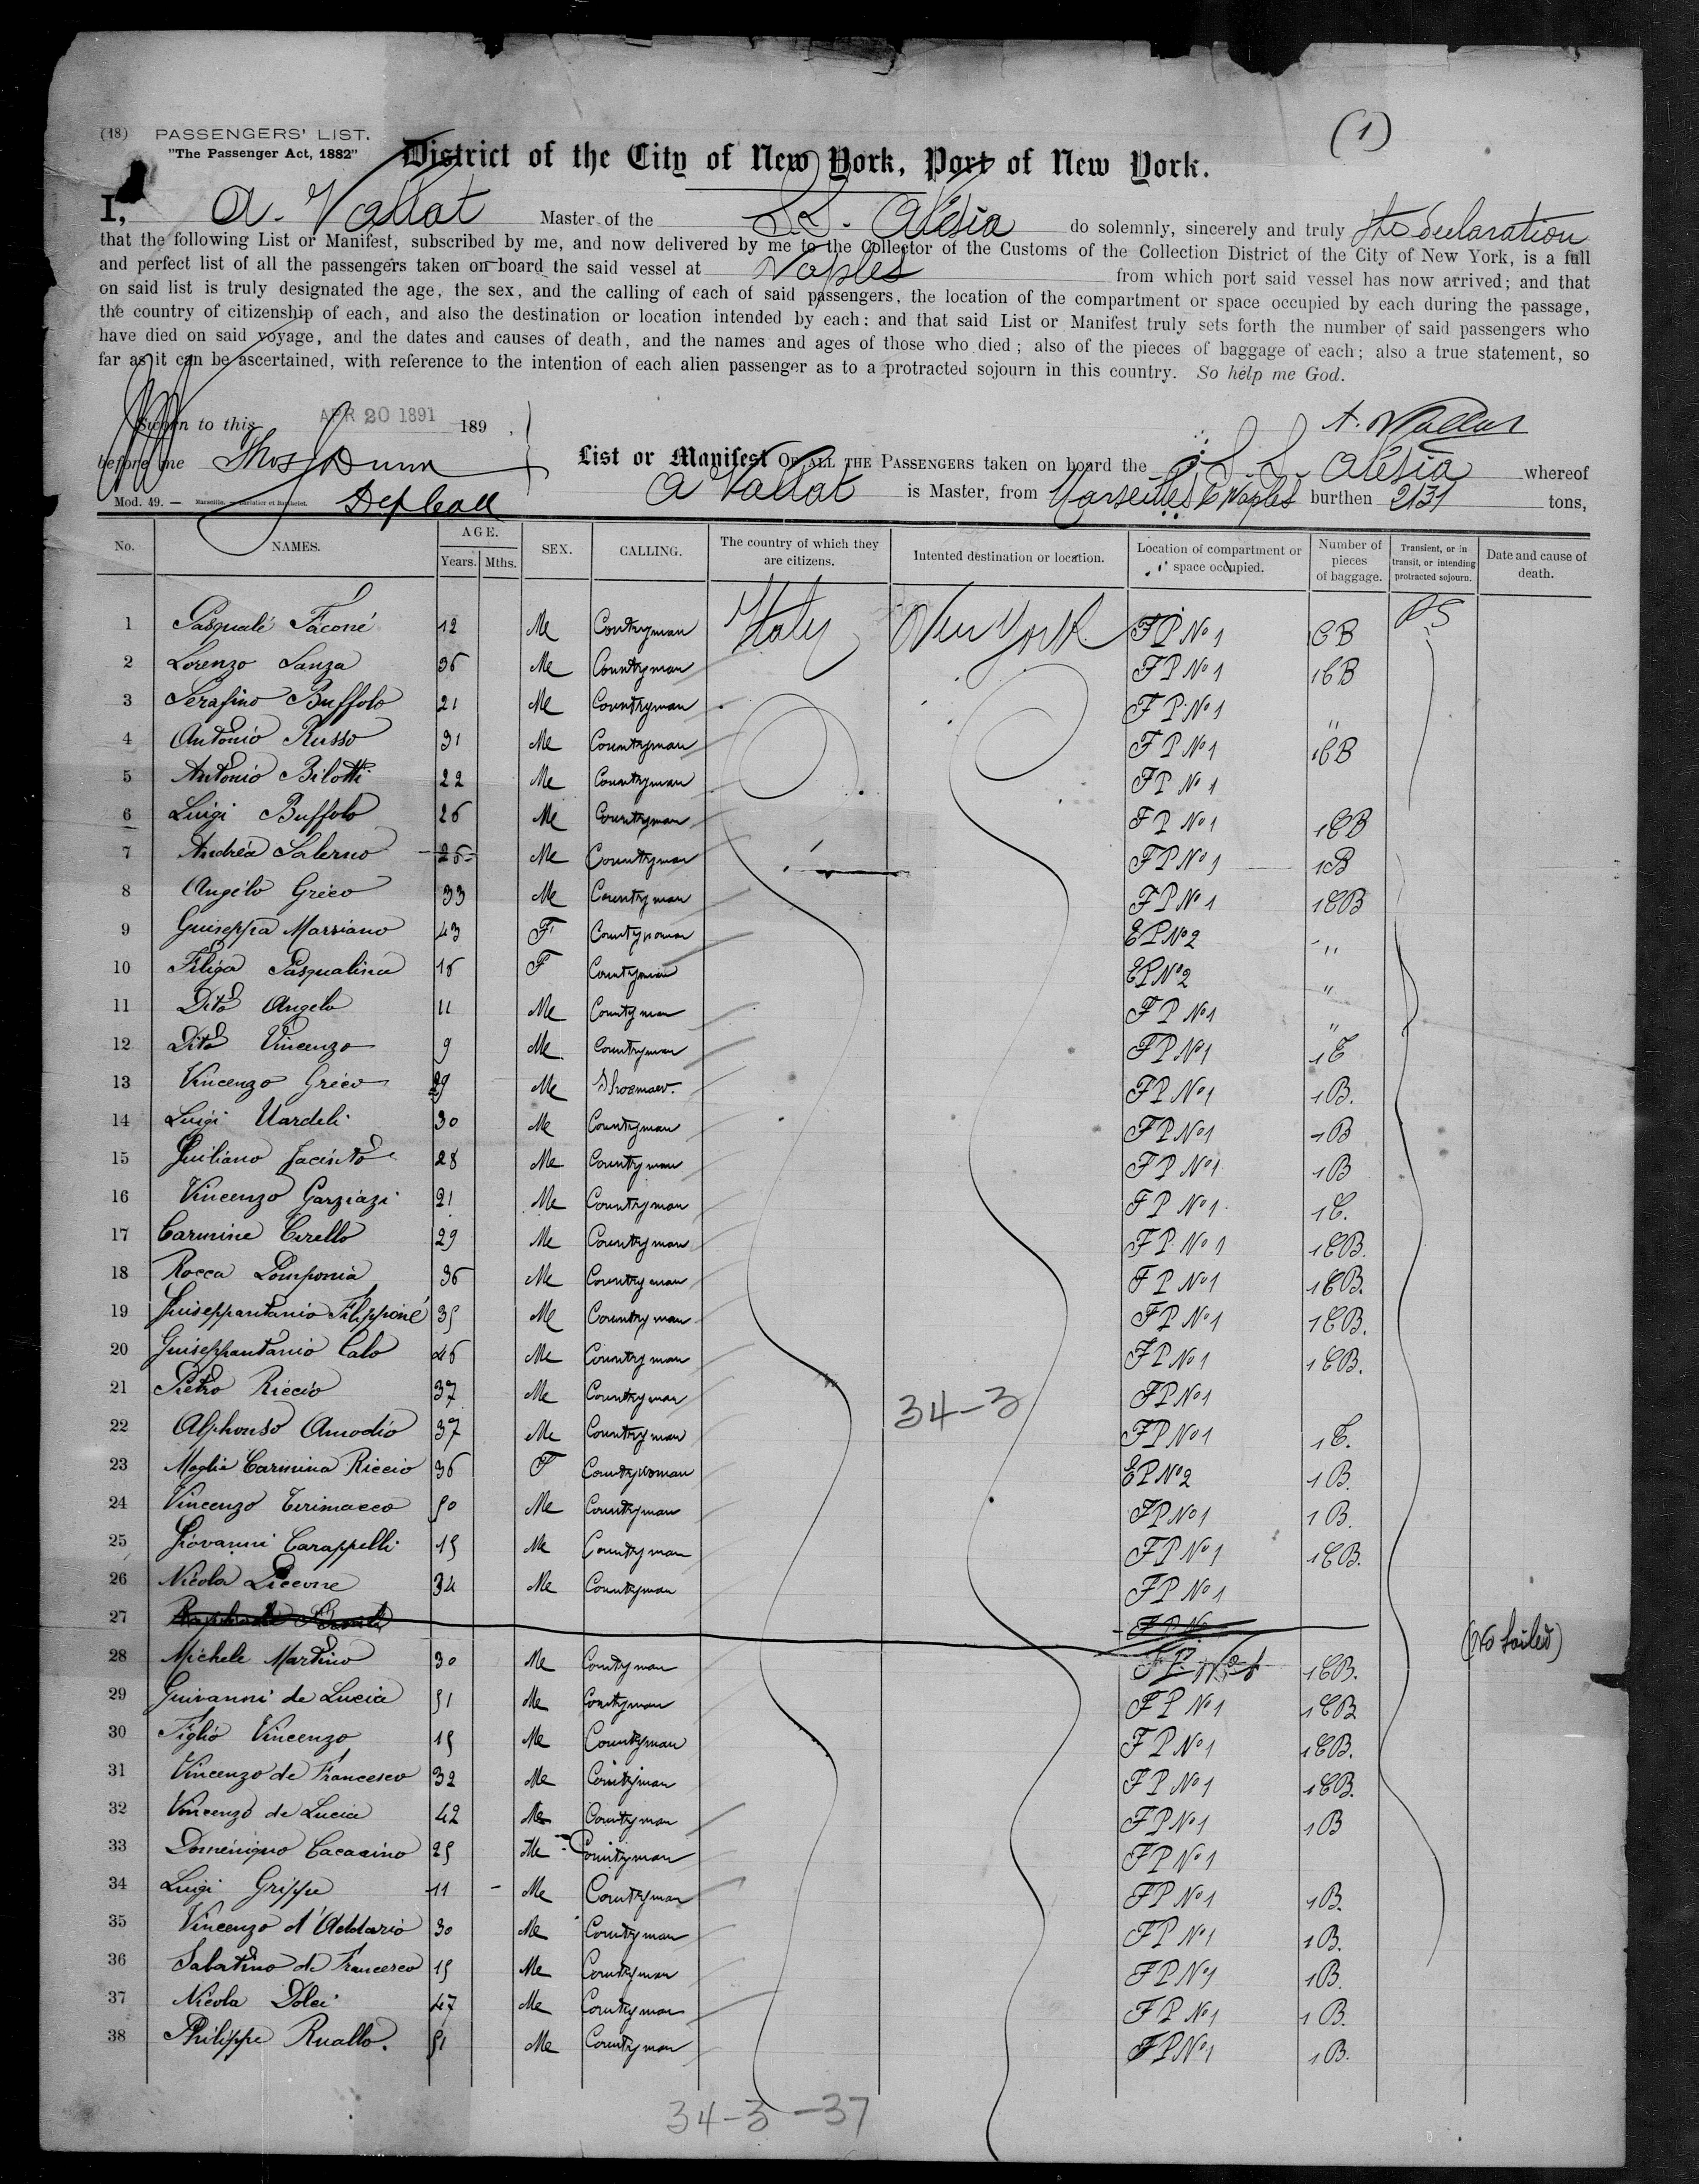 (18) PASSENGERS' LIST.
"The Passenger Act, 1882"
(1)
District of the City of New York, Port of New York.
I, A. Vallat Master of the S.S. Alésia do solemnly, sincerely and truly declaration
that the following List or Manifest, subscribed by me, and now delivered by me to the Collector of the Customs of the Collection District of the City of New York, is a full
and perfect list of all the passengers taken on board the said vessel at Naples from which port said vessel has now arrived; and that
on said list is truly designated the age, the sex, and the calling of each of said passengers, the location of the compartment or space occupied by each during the passage,
the country of citizenship of each, and also the destination or location intended by each: and that said List or Manifest truly sets forth the number of said passengers who
have died on said voyage, and the dates and causes of death, and the names and ages of those who died; also of the pieces of baggage of each; also a true statement, so
far as it can be ascertained, with reference to the intention of each alien passenger as to a protracted sojourn in this country. So help me God.
Sworn to this APR 20 1891 189 . A. Vallat
before me Thos J Dunn
List or Manifest OF ALL THE PASSENGERS taken on board the S.S. Alésia whereof
Mod. 49. — Dep Coll A Vallat is Master, from Marseilles & Naples burthen 2131 tons,
No. NAMES. AGE. Years. Mths. SEX. CALLING. The country of which they are citizens. Intented destination or location. Location of compartment or space occupied. Number of pieces of baggage. Transient, or in transit, or intending protracted sojourn. Date and cause of death.
1 Pasqualé Faconé 12 Me Contryman Italy New York FP No 1 CB PS
2 Lorenzo Lanza 36 Me Countryman FP No 1 1CB
3 Serafino Buffolo 21 Me Countryman FP No 1 "
4 Antonio Russo 31 Me Countryman FP No 1 1CB
5 Antonio Bilotti 22 Me Countryman FP No 1
6 Luigi Buffolo 26 Me Countryman FP No 1 1CB
7 Andréa Salerno 26 Me Countryman FP No 1 1B
8 Angélo Gréco 33 Me Countryman FP No 1 1CB
9 Guiseppa Marsiano 43 F Countrywoman EP No 2 "
10 Filiga Pasqualina 16 F EP No 2 "
11 Dito Angelo 11 Me Countryman FP No 1 "
12 Dito Vincenzo 9 Me Countryman FP No 1 1C
13 Vincenzo Gréco 29 Me FP No 1 1B.
14 Luigi Uardeli 30 Me Countryman FP No 1 1B
15 Guiliano Jacinto 28 Me Countryman FP No 1 1B
16 Vincenzo Garziazi 21 Me Countryman FP No 1 1C.
17 Carmine Cirello 29 Me Countryman FP No 1 1CB.
18 Rocca Pomponia 36 Me Countryman FP No 1 1CB.
19 Guiseppantanio Filipponé 35 Me Countryman FP No 1 1CB.
20 Guiseppantanio Calo 46 Me Countryman FP No 1 1CB.
21 Pietro Riccio 37 Me Countryman 34-3 FP No 1
22 Alphonso Amodio 37 Me Countryman FP No 1 1C.
23 Moglie Carmina Riccio 36 F Countrywoman EP No 2 1B.
24 Vincenzo Cirimacco 50 Me Countryman FP No 1 1B.
25 Giovanni Carappelli 15 Me Countryman FP No 1 1CB.
26 Nicola Piccone 34 Me Countryman FP No 1
27 FP No (No Sailed)
28 Michele Martino 30 Me Countryman FP No 1 1CB.
29 Guivanni de Lucia 51 Me Countryman FP No 1 1CB
30 Figlio Vincenzo 15 Me Countryman FP No 1 1CB.
31 Vincenzo de Francesco 32 Me Countryman FP No 1 1CB.
32 Vincenzo de Lucia 42 Me Countryman FP No 1 1B
33 Domenigno Cacacino 25 Me Countryman FP No 1
34 Luigi Grippe 11 Me Countryman FP No 1 1B.
35 Vincenzo d'Addario 30 Me Countryman FP No 1 1B.
36 Sabatino de Francesco 15 Me Countryman FP No 1 1B.
37 Nicola Dolci 47 Me Countryman FP No 1 1B.
38 Philippe Ruallo. 51 Me Countryman FP No 1 1B.
34-3 -37